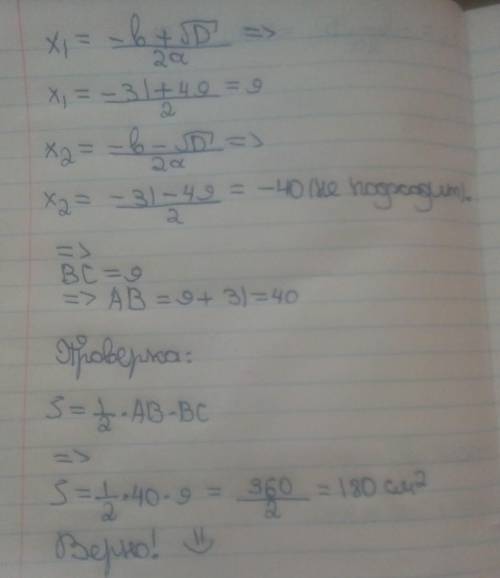 x₁ = (-b + √D) / 2a =>
x₁ = (-31 + 49) / 2 = 9
x₂ = (-b - √D) / 2a =>
x₂ = (-31 - 49) / 2 = -40 (не подходит).
=>
BC = 9
=> AB = 9 + 31 = 40
Проверка:
S = 1/2 · AB · BC
=>
S = 1/2 · 40 · 9 = 360/2 = 180 см²
Верно! =)